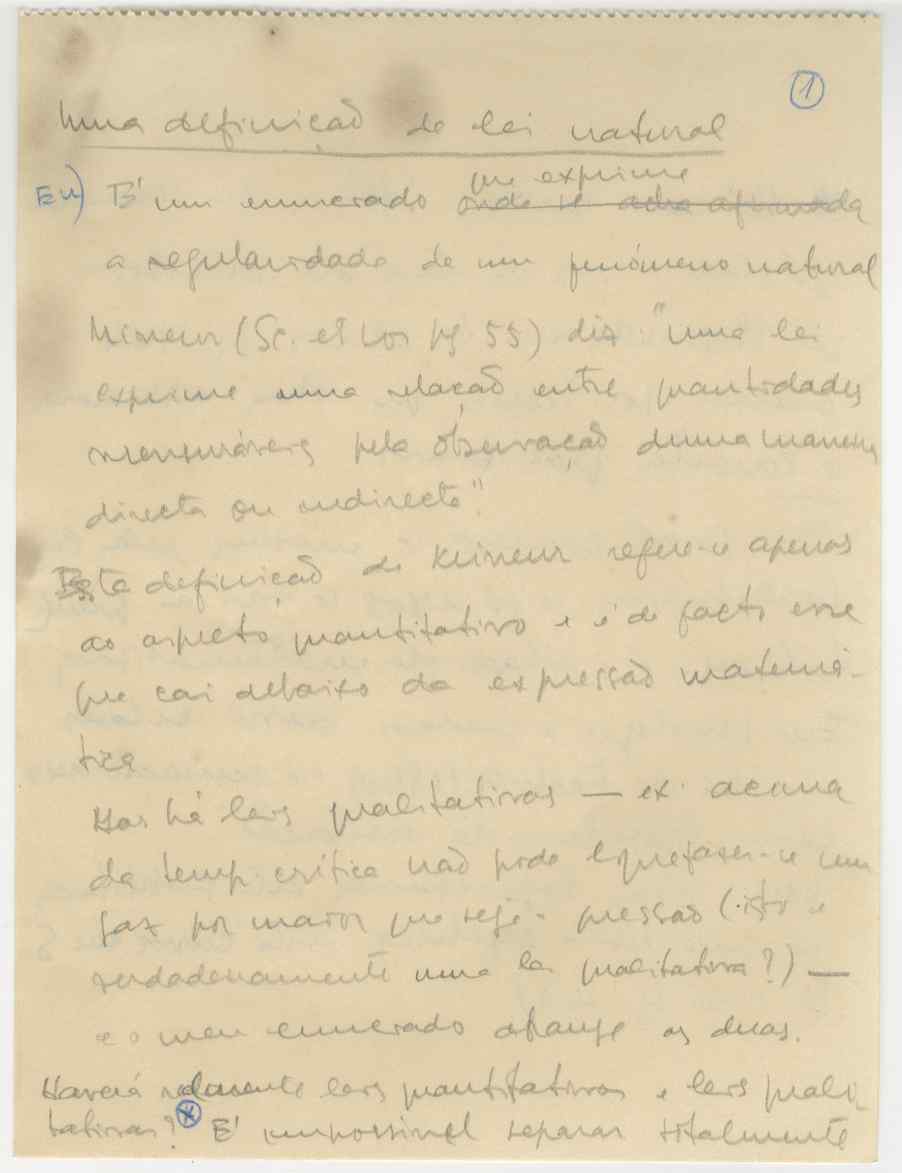 1
Uma definição de lei natural
que exprime
Eu) É um enunciado onde se acha afirmada
a regularidade de um fenómeno natural
Mineur (Sc. et Loi pg 55) diz "uma lei
exprime uma relação entre quantidades
mensuráveis pela observação duma maneira
directa ou indirecta"
Esta definição de Mineur refere-se apenas
ao aspecto quantitativo e é de facto esse
que cai debaixo da expressão matemá-
tica
Mas há leis qualitativas — ex. acima
da temp. crítica não pode liquefazer-se um
gaz por maior que seja a pressão (isto é
verdadeiramente uma lei qualitativa?) —
e o meu enunciado abrange as duas.
Haverá realmente leis quantitativas e leis quali
tativas? É impossivel separar totalmente